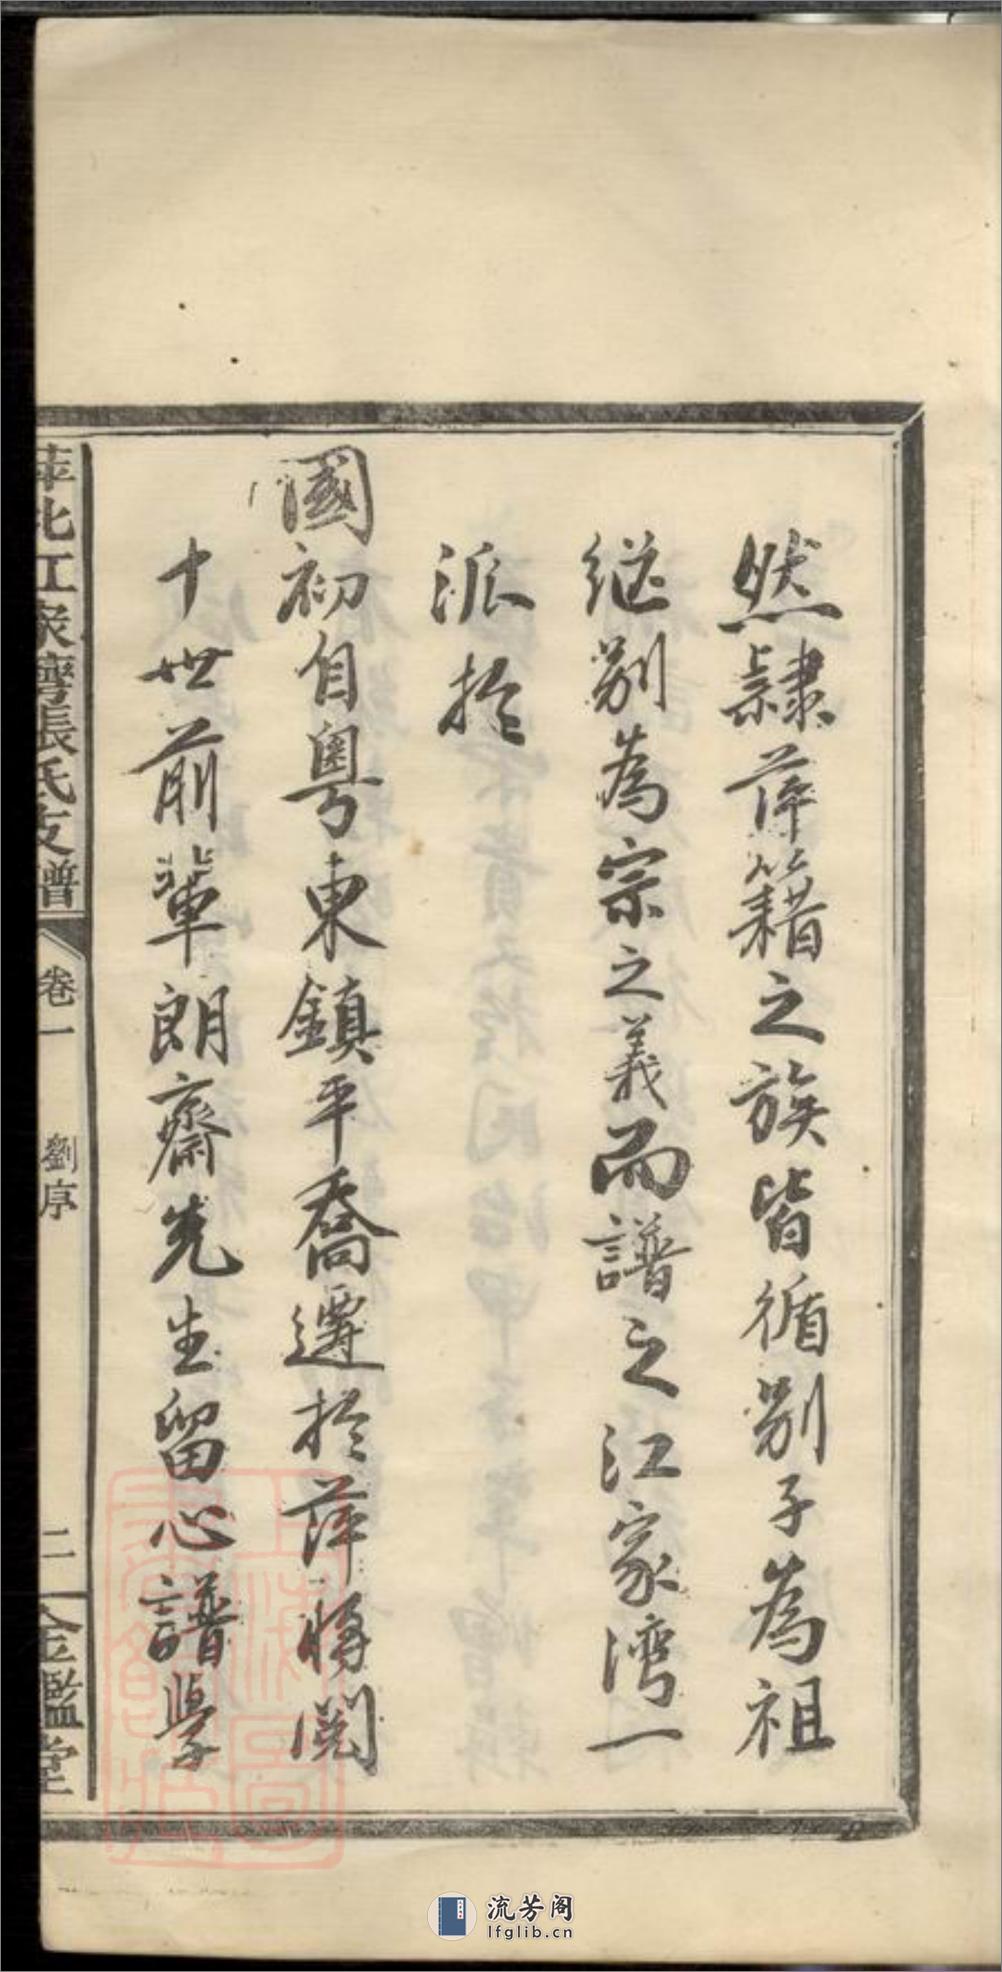 然隸萍籍之族皆循別子為祖
继別為宗之義而譜之江家湾一
派於
國初自粵東鎮平喬遷於萍將閱
十世前輩朗齋先生留心譜學
萍北江家灣張氏支譜
卷一
劉序
二
金鑑堂
流芳阁
lfglib.cn